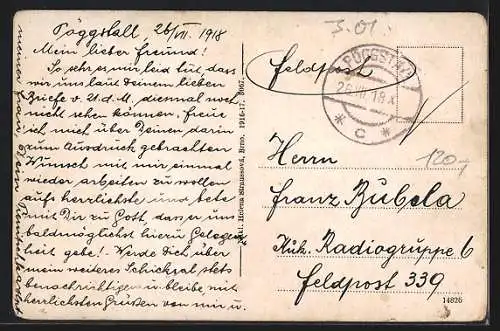 Pöggstall, 26/VII. 1918
Mein lieber Freund!
So sehr es mir leid tut dass
wir uns laut Deinem lieben
Briefe v. 21. d. M. diesmal noch
nicht sehen können, freue
ich mich über Deinen darin
zum Ausdruck gebrachten
Wunsch mit mir einmal
wieder arbeiten zu wollen
aufs herrlichste und bete
mit Dir zu Gott, dass er uns
baldmöglichst hierzu Gelegen
heit gebe! Werde Dich über
mein weiteres Schicksal stets
benachrichtigen u. bleibe mit
herzlichsten Grüßen von mir u.
meiner Frau Dein
Helena Straussová, Brno. 1916-17. 8067.
3.01.
Feldpost
PÖGGSTALL
26.VII.18
* C *
120,-
Herrn
Franz Bubela
K.u.k. Radiogruppe 6
Feldpost 339
14826